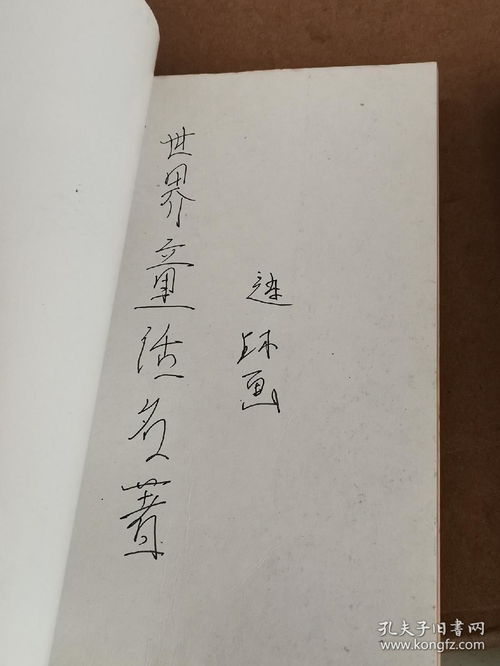 世界童话名著
连环画
孔夫子旧书网
www.kongfz.com